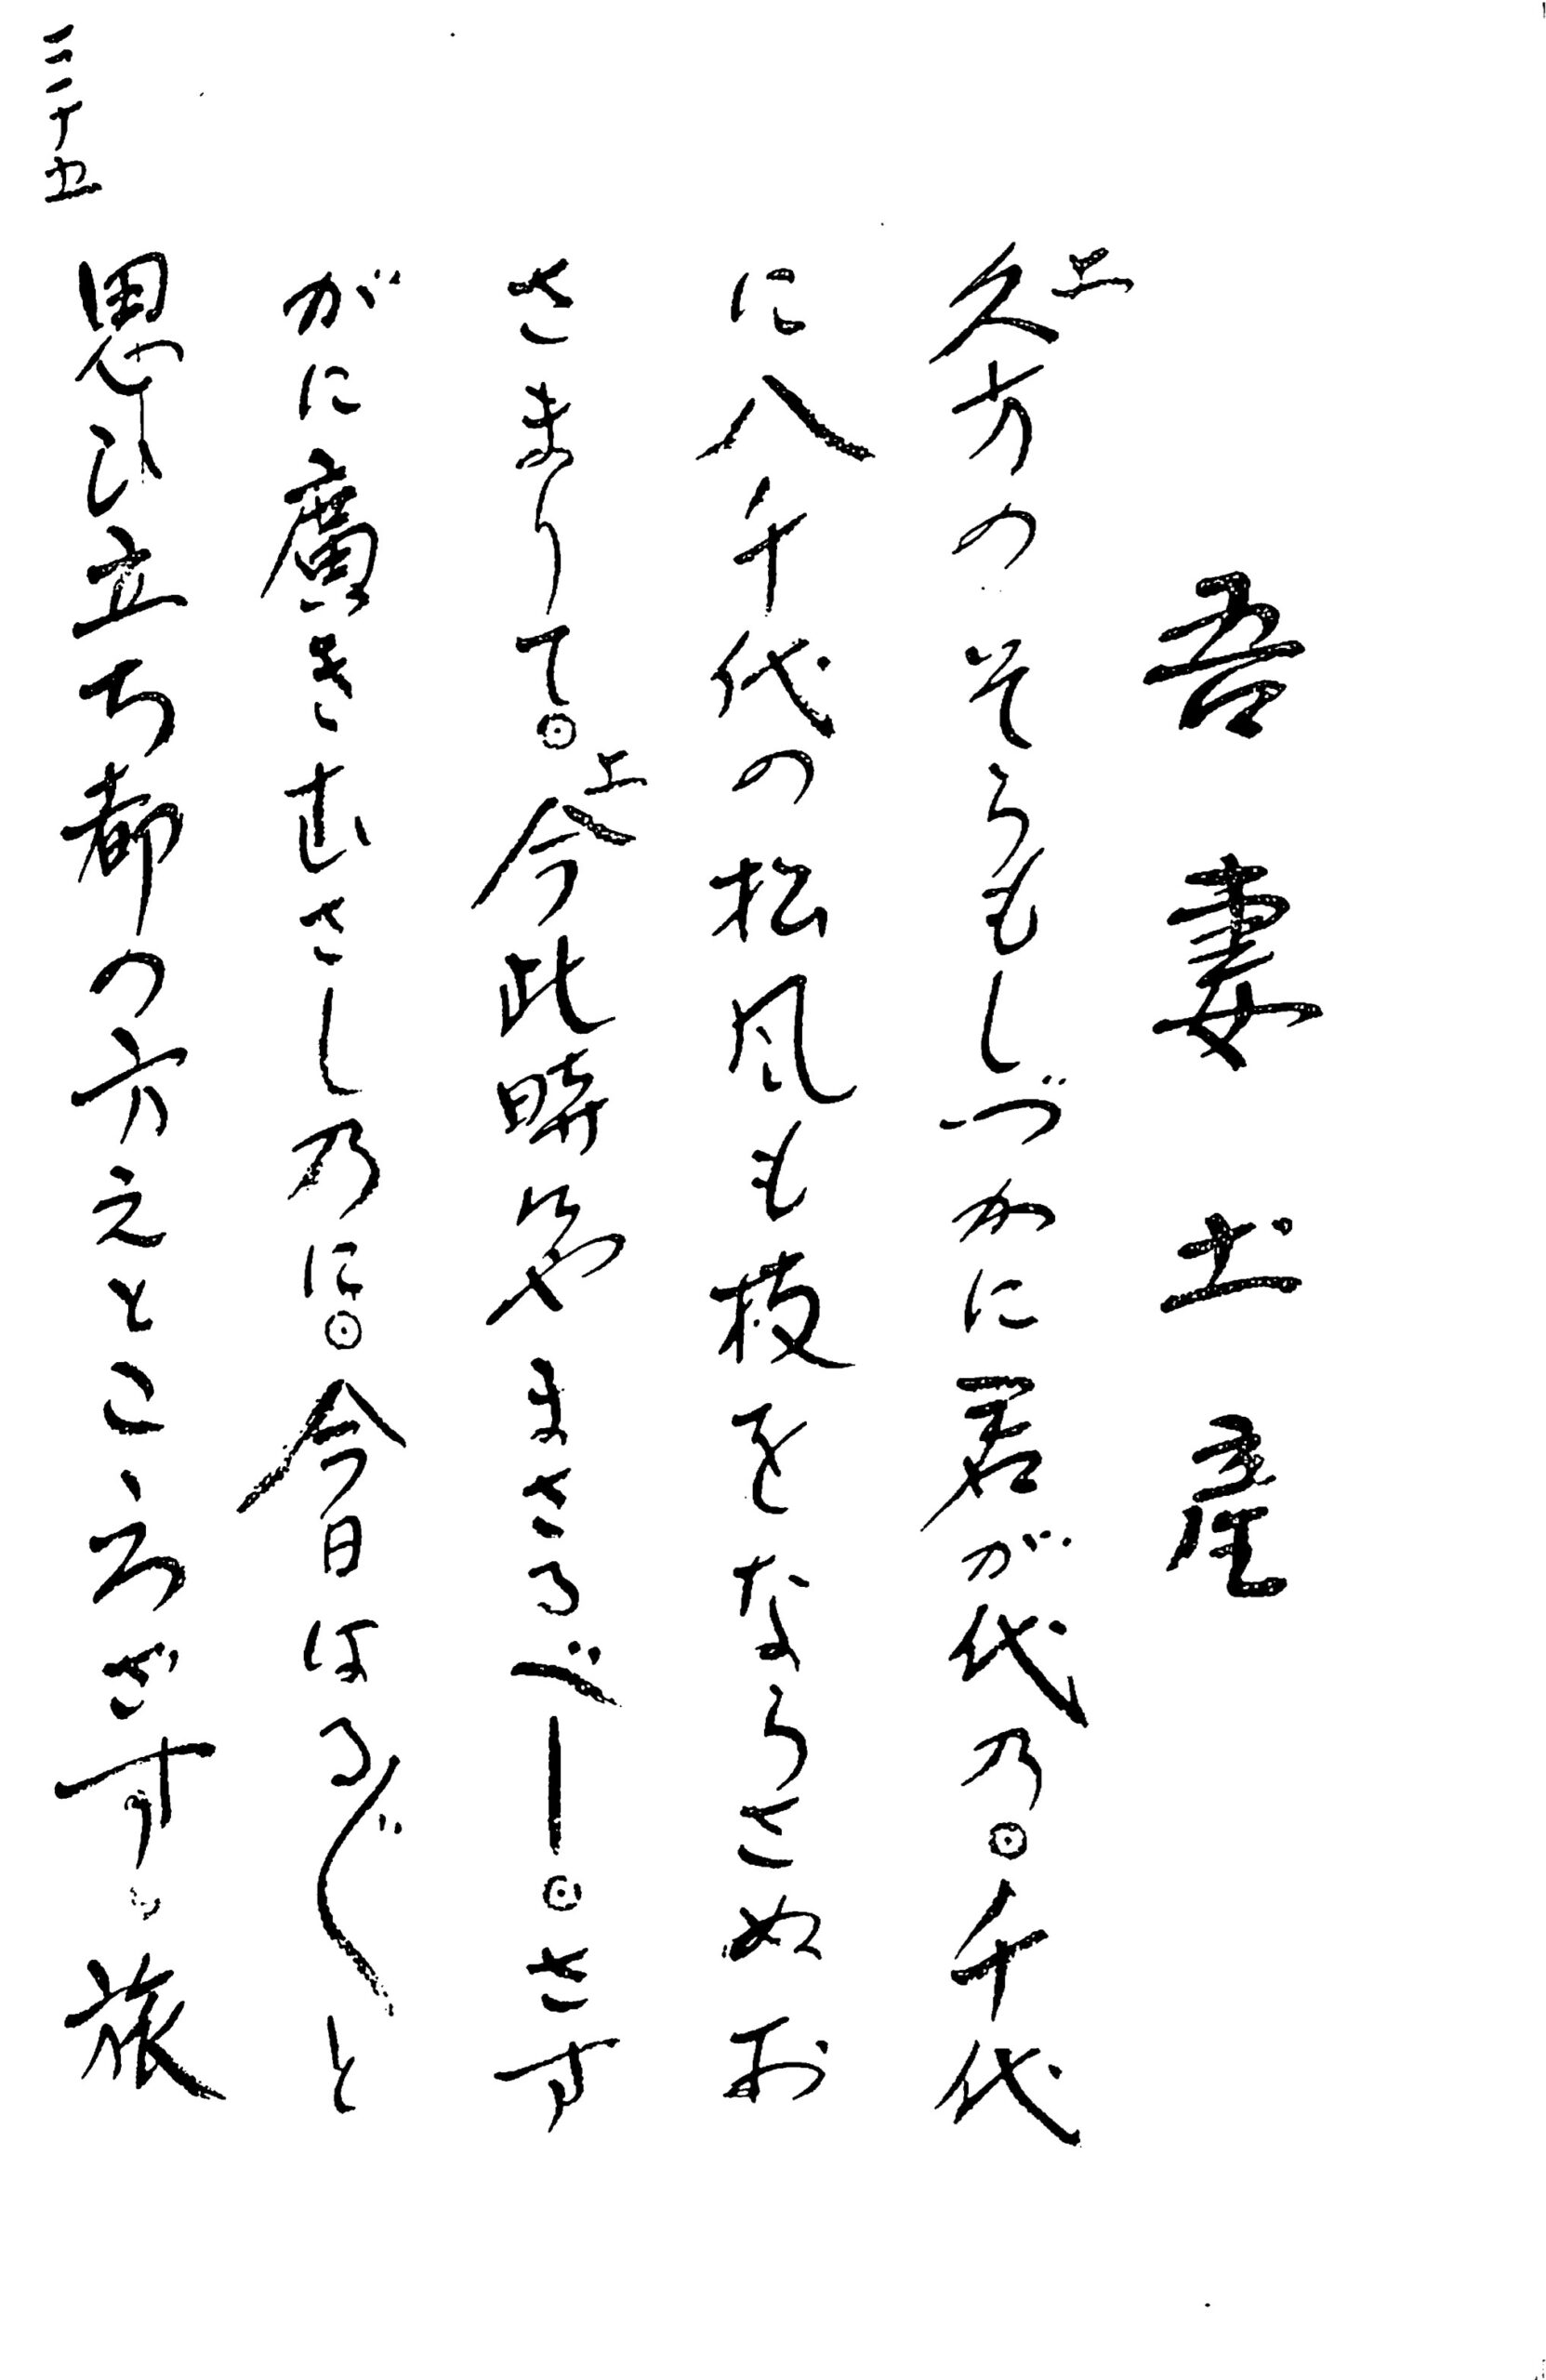 吾妻土産
上
久方のそらもしづかに君が代乃◎千代
に八千代の松風も枝をならさぬお
さまりて◎上今此時やまさるべし◎さす
がに廣きむさし乃に◎今日はる〲と
思ひ立ち都の方えとこゝろざす旅
三十五